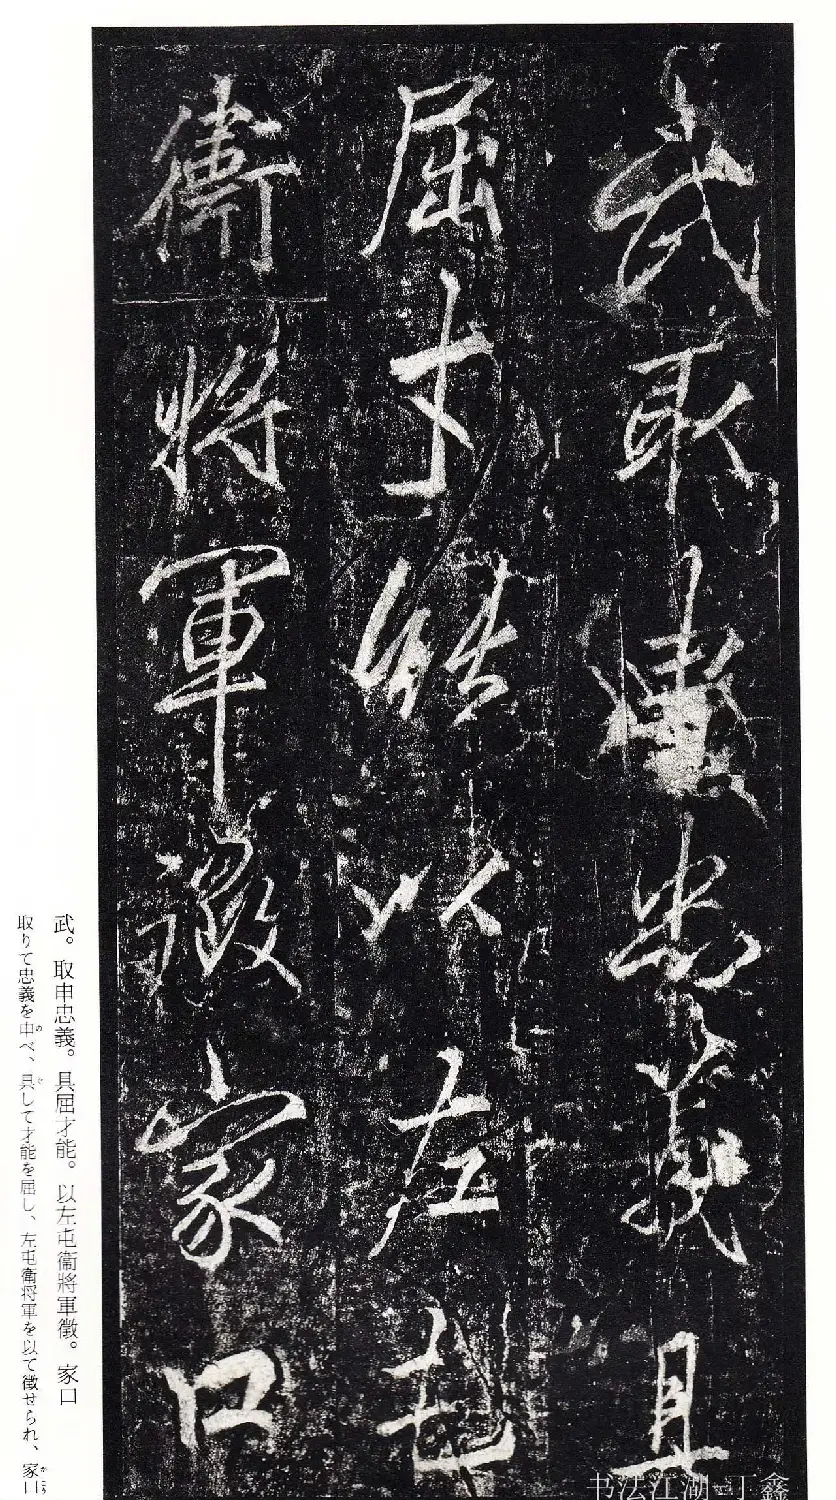 武取忠義具
屈才能以左屯
衛將軍徵家口
武。取申忠義。具屈才能。以左屯衞將軍徵。家口
取りて忠義を申べ、具して才能を屈し、左屯衛将軍を以て徴せられ、家口
书法江湖 丁鑫